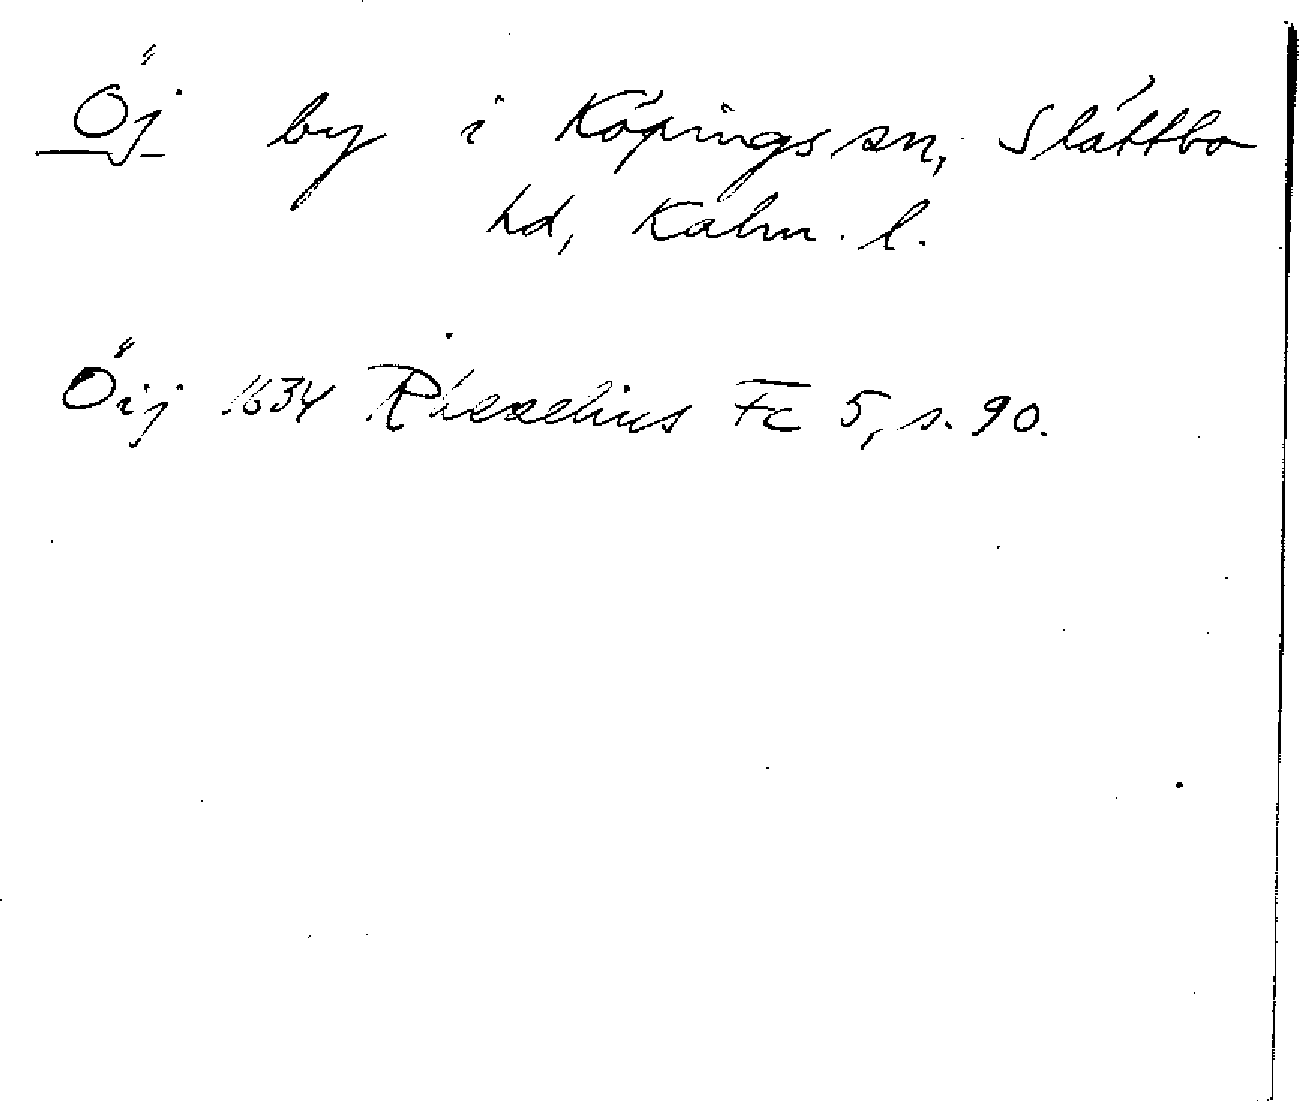 Öj by i Köpings sn, Slättbo
hd, Kalm. l.
Öij 1634 Rhezelius Fc 5, s. 90.